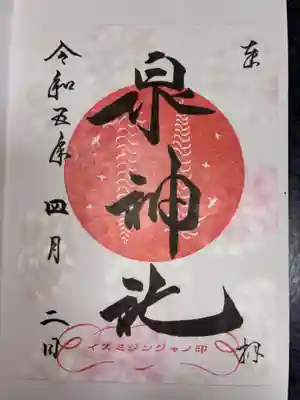 奉拝
泉神社
令和五年四月二日
イズミジンジャノ印